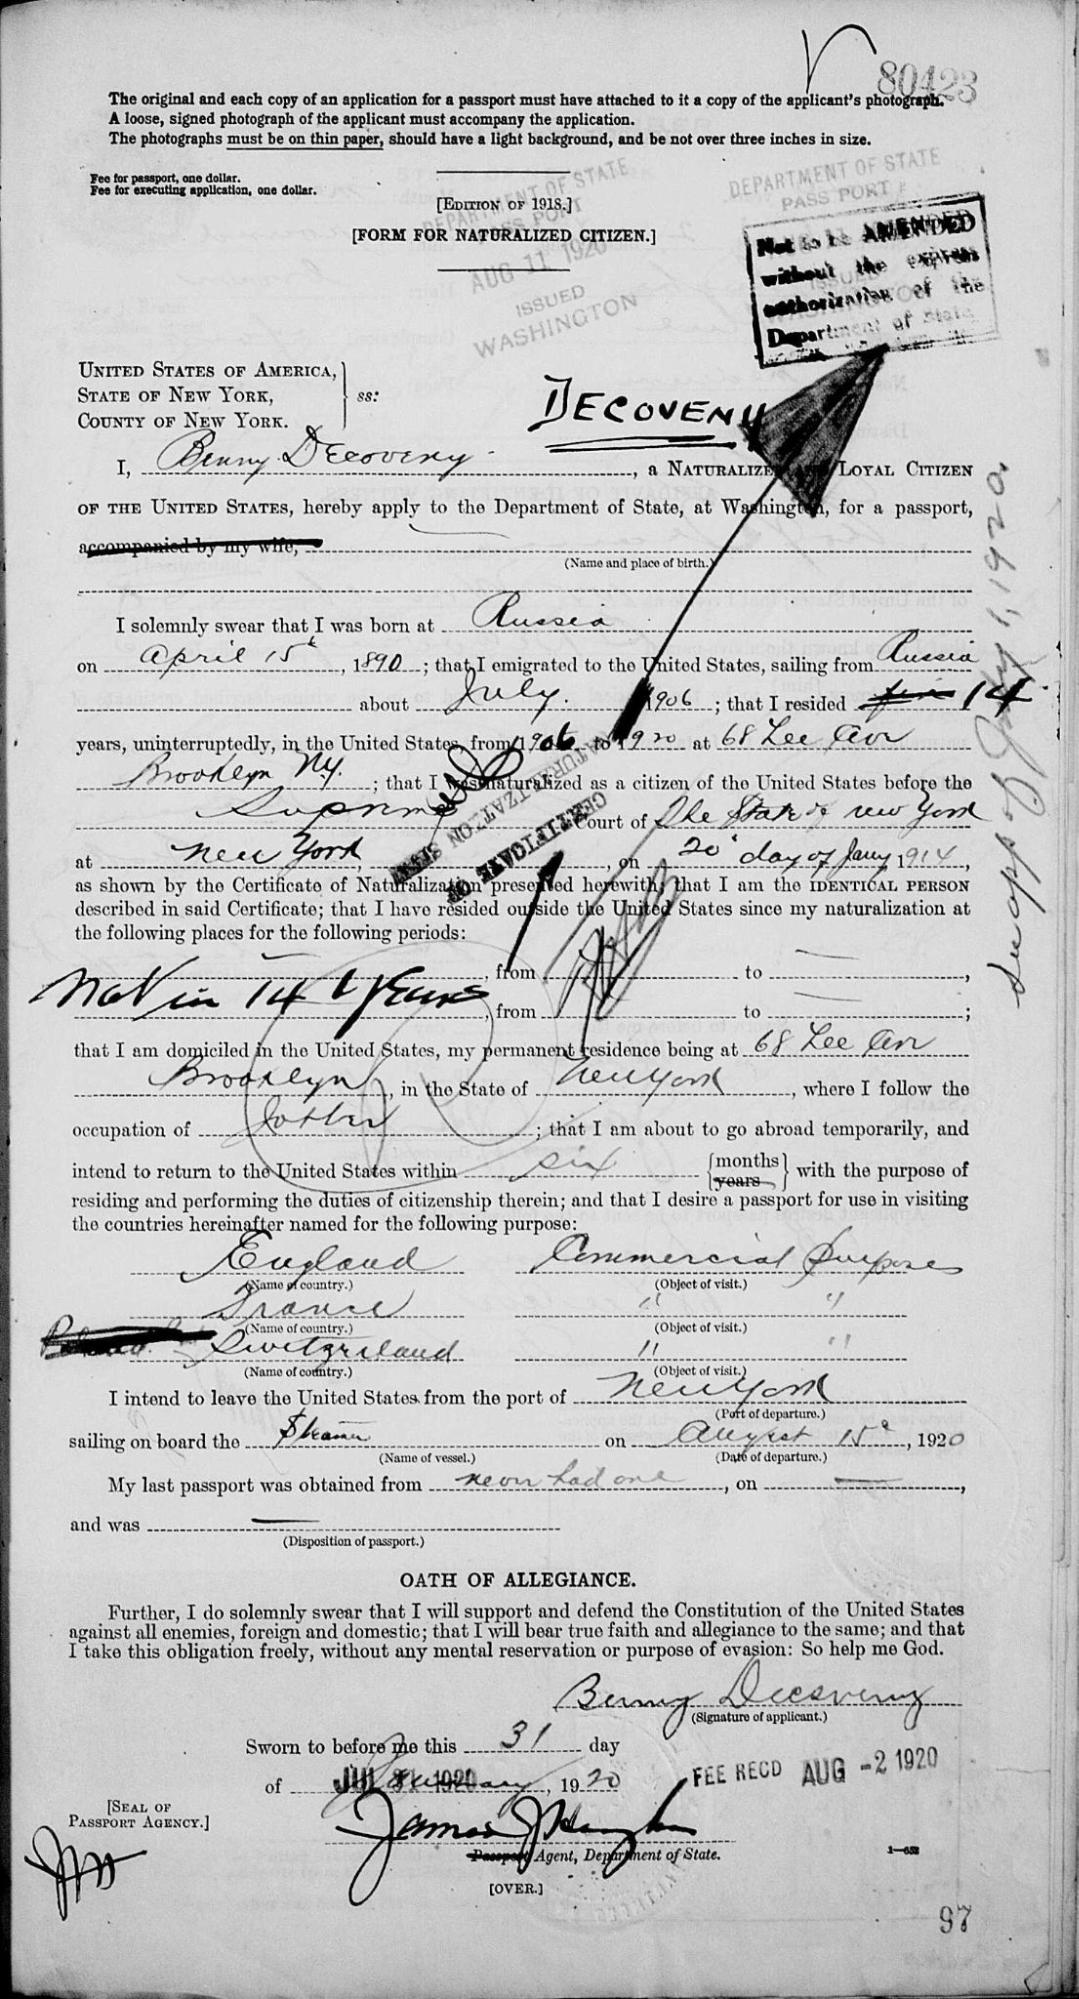 80423
The original and each copy of an application for a passport must have attached to it a copy of the applicant's photograph.
A loose, signed photograph of the applicant must accompany the application.
The photographs must be on thin paper, should have a light background, and be not over three inches in size.
Fee for passport, one dollar.
Fee for executing application, one dollar.
[EDITION OF 1918.]
[FORM FOR NATURALIZED CITIZEN.]
DEPARTMENT OF STATE
PASS PORT
AUG 11 1920
ISSUED
WASHINGTON
DEPARTMENT OF STATE
PASS PORT
ISSUED
Not to be AMENDED
without the express
authorization of the
Department of State
UNITED STATES OF AMERICA,
STATE OF NEW YORK,
COUNTY OF NEW YORK.
ss:
DECOVENY
I, Benny Decoveny, a NATURALIZED AND LOYAL CITIZEN
OF THE UNITED STATES, hereby apply to the Department of State, at Washington, for a passport,
accompanied by my wife,
(Name and place of birth.)
I solemnly swear that I was born at Russia
on April 15th, 1890; that I emigrated to the United States, sailing from Russia
about July 1906; that I resided five 14
years, uninterruptedly, in the United States, from 1906 to 1920 at 68 Lee Ave
Brooklyn Ny.; that I was naturalized as a citizen of the United States before the
Supreme Court of The State of new York
at New York, on 20' day of Jany 1914,
CERTIFICATE OF
NATURALIZATION SEEN
as shown by the Certificate of Naturalization presented herewith; that I am the IDENTICAL PERSON
described in said Certificate; that I have resided outside the United States since my naturalization at
the following places for the following periods:
, from to ,
Not in 14 years, from to ;
that I am domiciled in the United States, my permanent residence being at 68 Lee Ave
Brooklyn, in the State of New York, where I follow the
occupation of Jobber; that I am about to go abroad temporarily, and
intend to return to the United States within six {months years} with the purpose of
residing and performing the duties of citizenship therein; and that I desire a passport for use in visiting
the countries hereinafter named for the following purpose:
England Commercial Purposes
(Name of country.) (Object of visit.)
France " "
(Name of country.) (Object of visit.)
Switzerland " "
(Name of country.) (Object of visit.)
I intend to leave the United States from the port of New York
(Port of departure.)
sailing on board the Steamer on August 15th, 1920
(Name of vessel.) (Date of departure.)
My last passport was obtained from never had one, on ,
and was
(Disposition of passport.)
OATH OF ALLEGIANCE.
Further, I do solemnly swear that I will support and defend the Constitution of the United States
against all enemies, foreign and domestic; that I will bear true faith and allegiance to the same; and that
I take this obligation freely, without any mental reservation or purpose of evasion: So help me God.
Benny Decoveny
(Signature of applicant.)
Sworn to before me this 31 day
of JUL 31 1920, 1920
FEE RECD AUG -2 1920
[SEAL OF
PASSPORT AGENCY.]
Passport Agent, Department of State.
1—652
[OVER.]
97